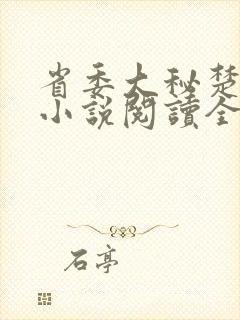 省委大秘楚
小說閱讀全
石亭